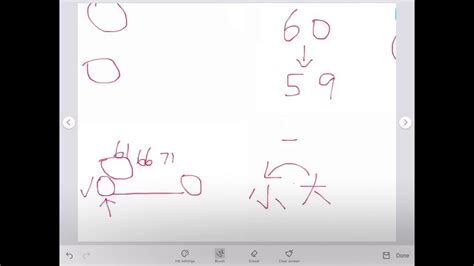 60
↓
59
61 66 71
一
小 大
Ink settings Brush Eraser Clear screen Done